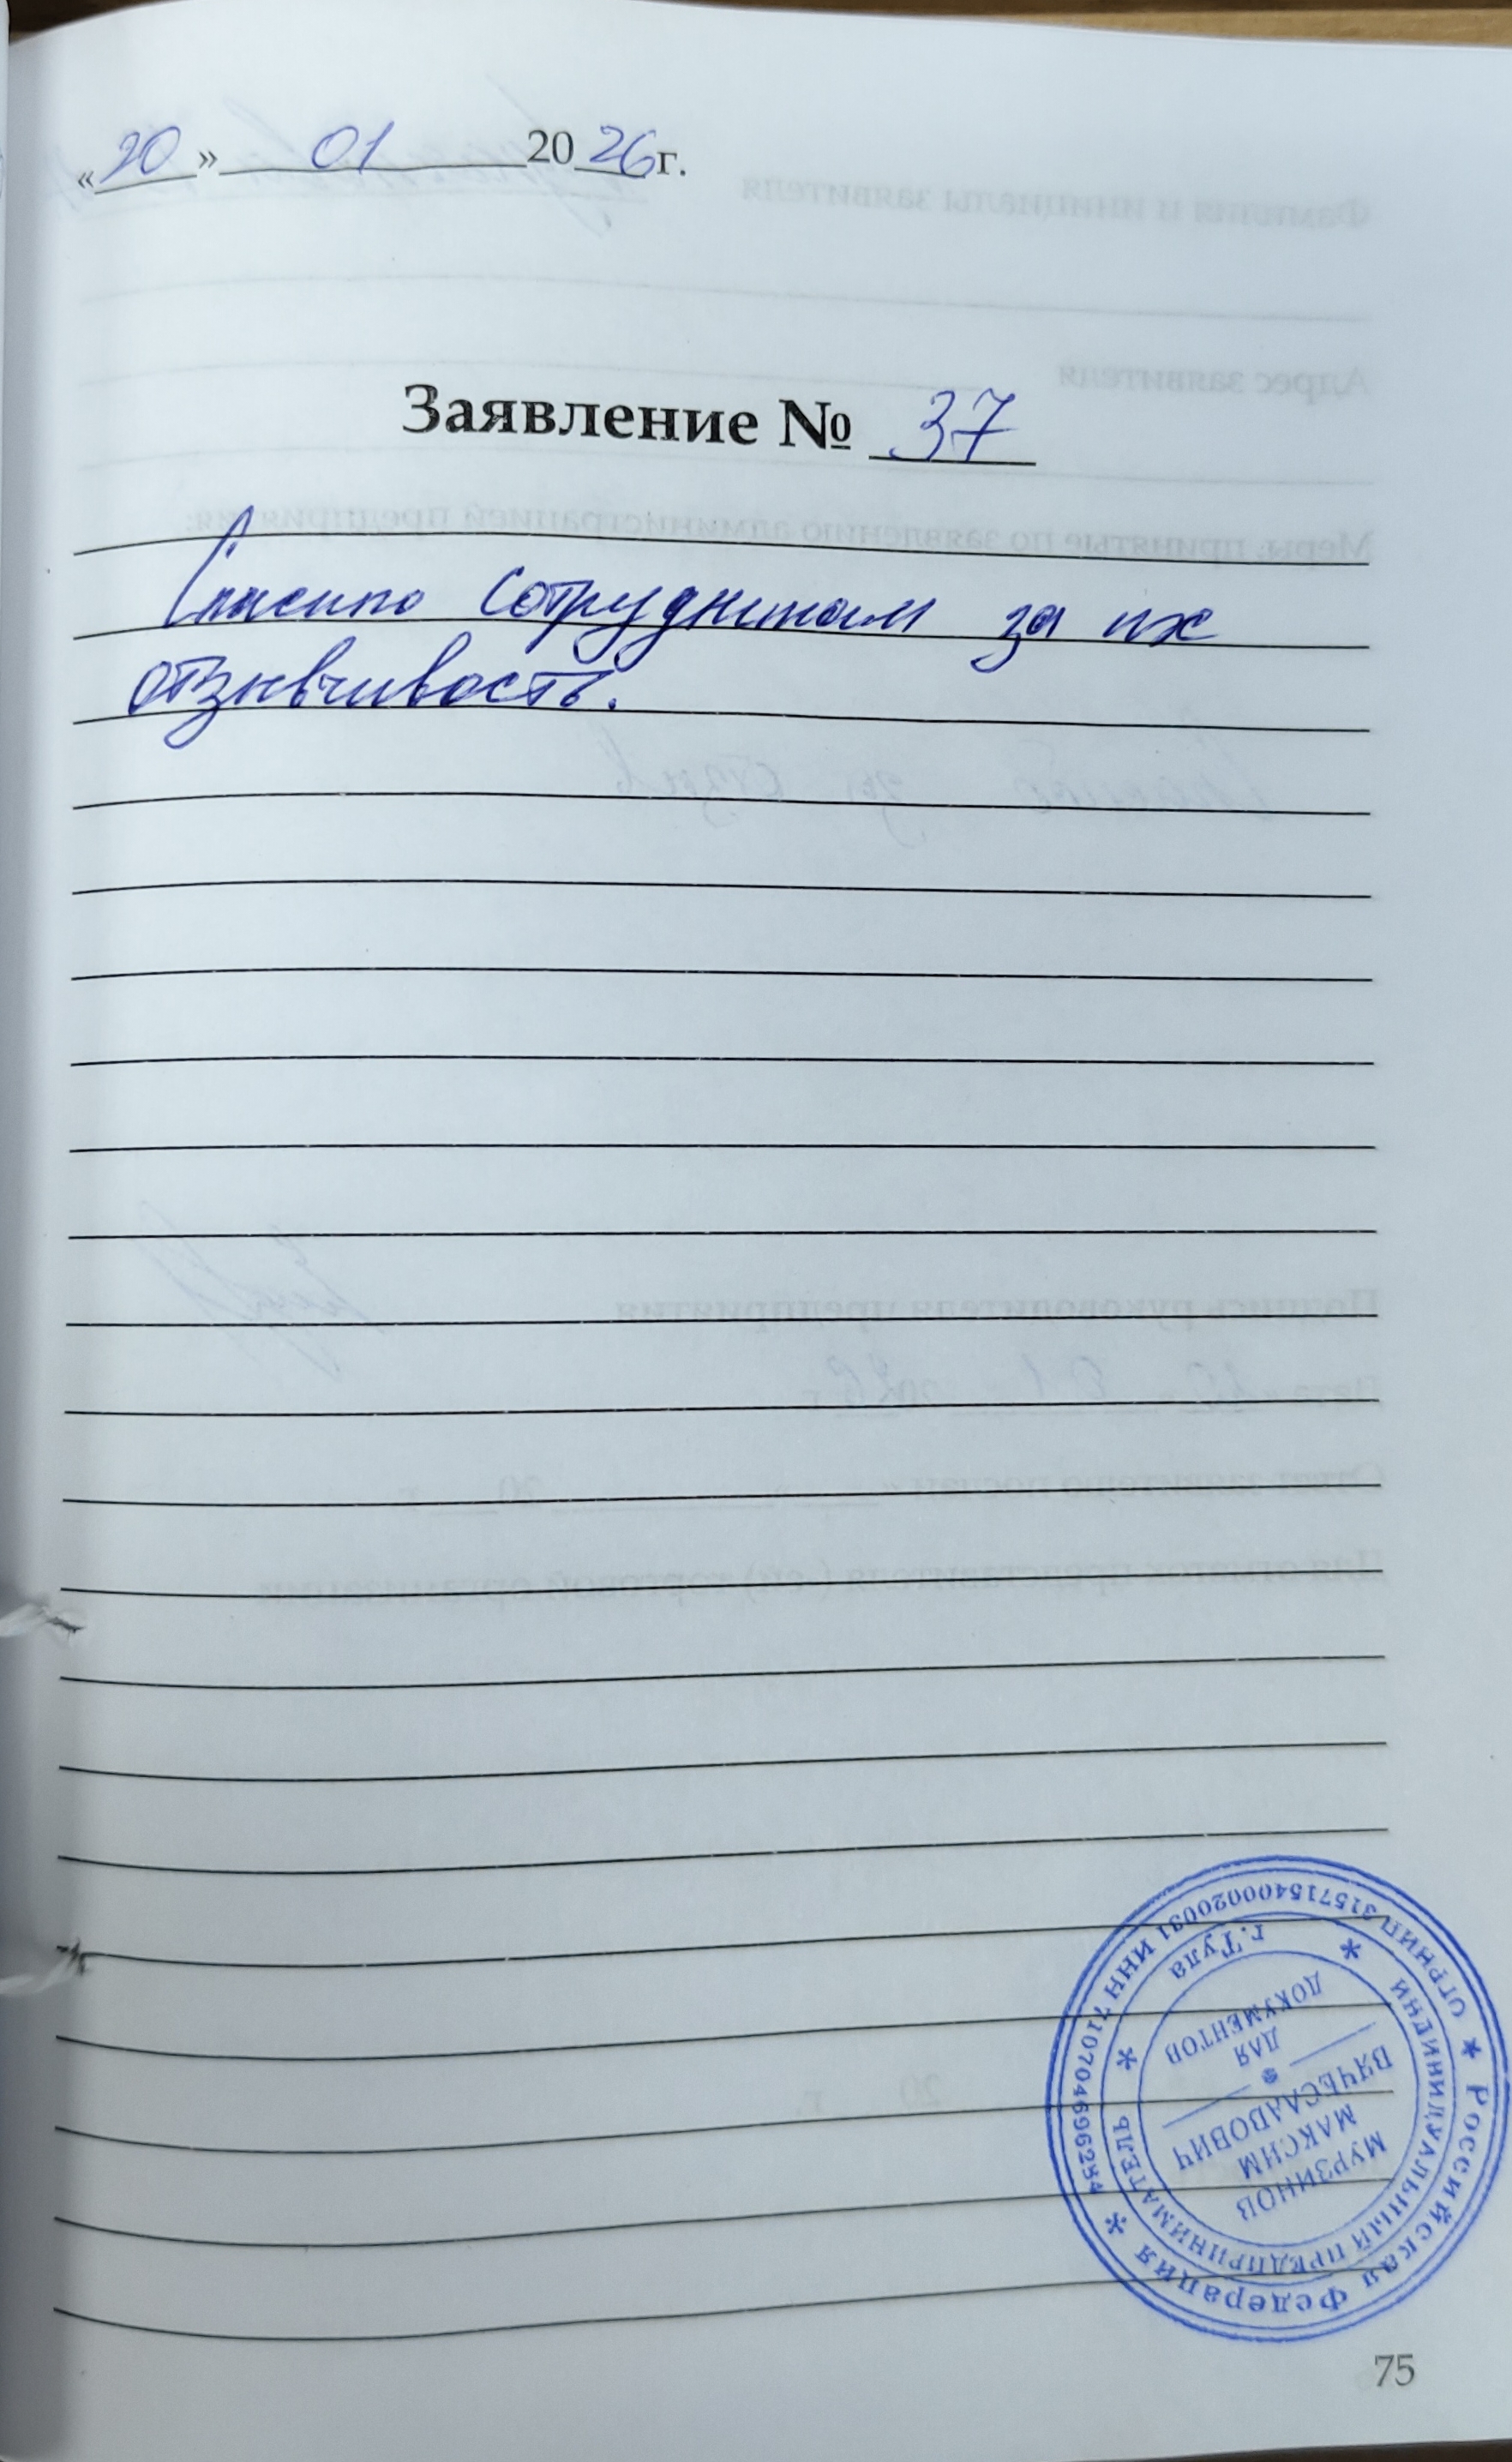 «20» 01 2026 г.
Заявление № 37
Спасибо сотрудникам за их
отзывчивость.
Российская Федерация
ОГРНИП 315715400020031 ИНН 710704696284
ИНДИВИДУАЛЬНЫЙ ПРЕДПРИНИМАТЕЛЬ
г. Тула
МУРЗИНОВ
МАКСИМ
ВЯЧЕСЛАВОВИЧ
ДЛЯ
ДОКУМЕНТОВ
75